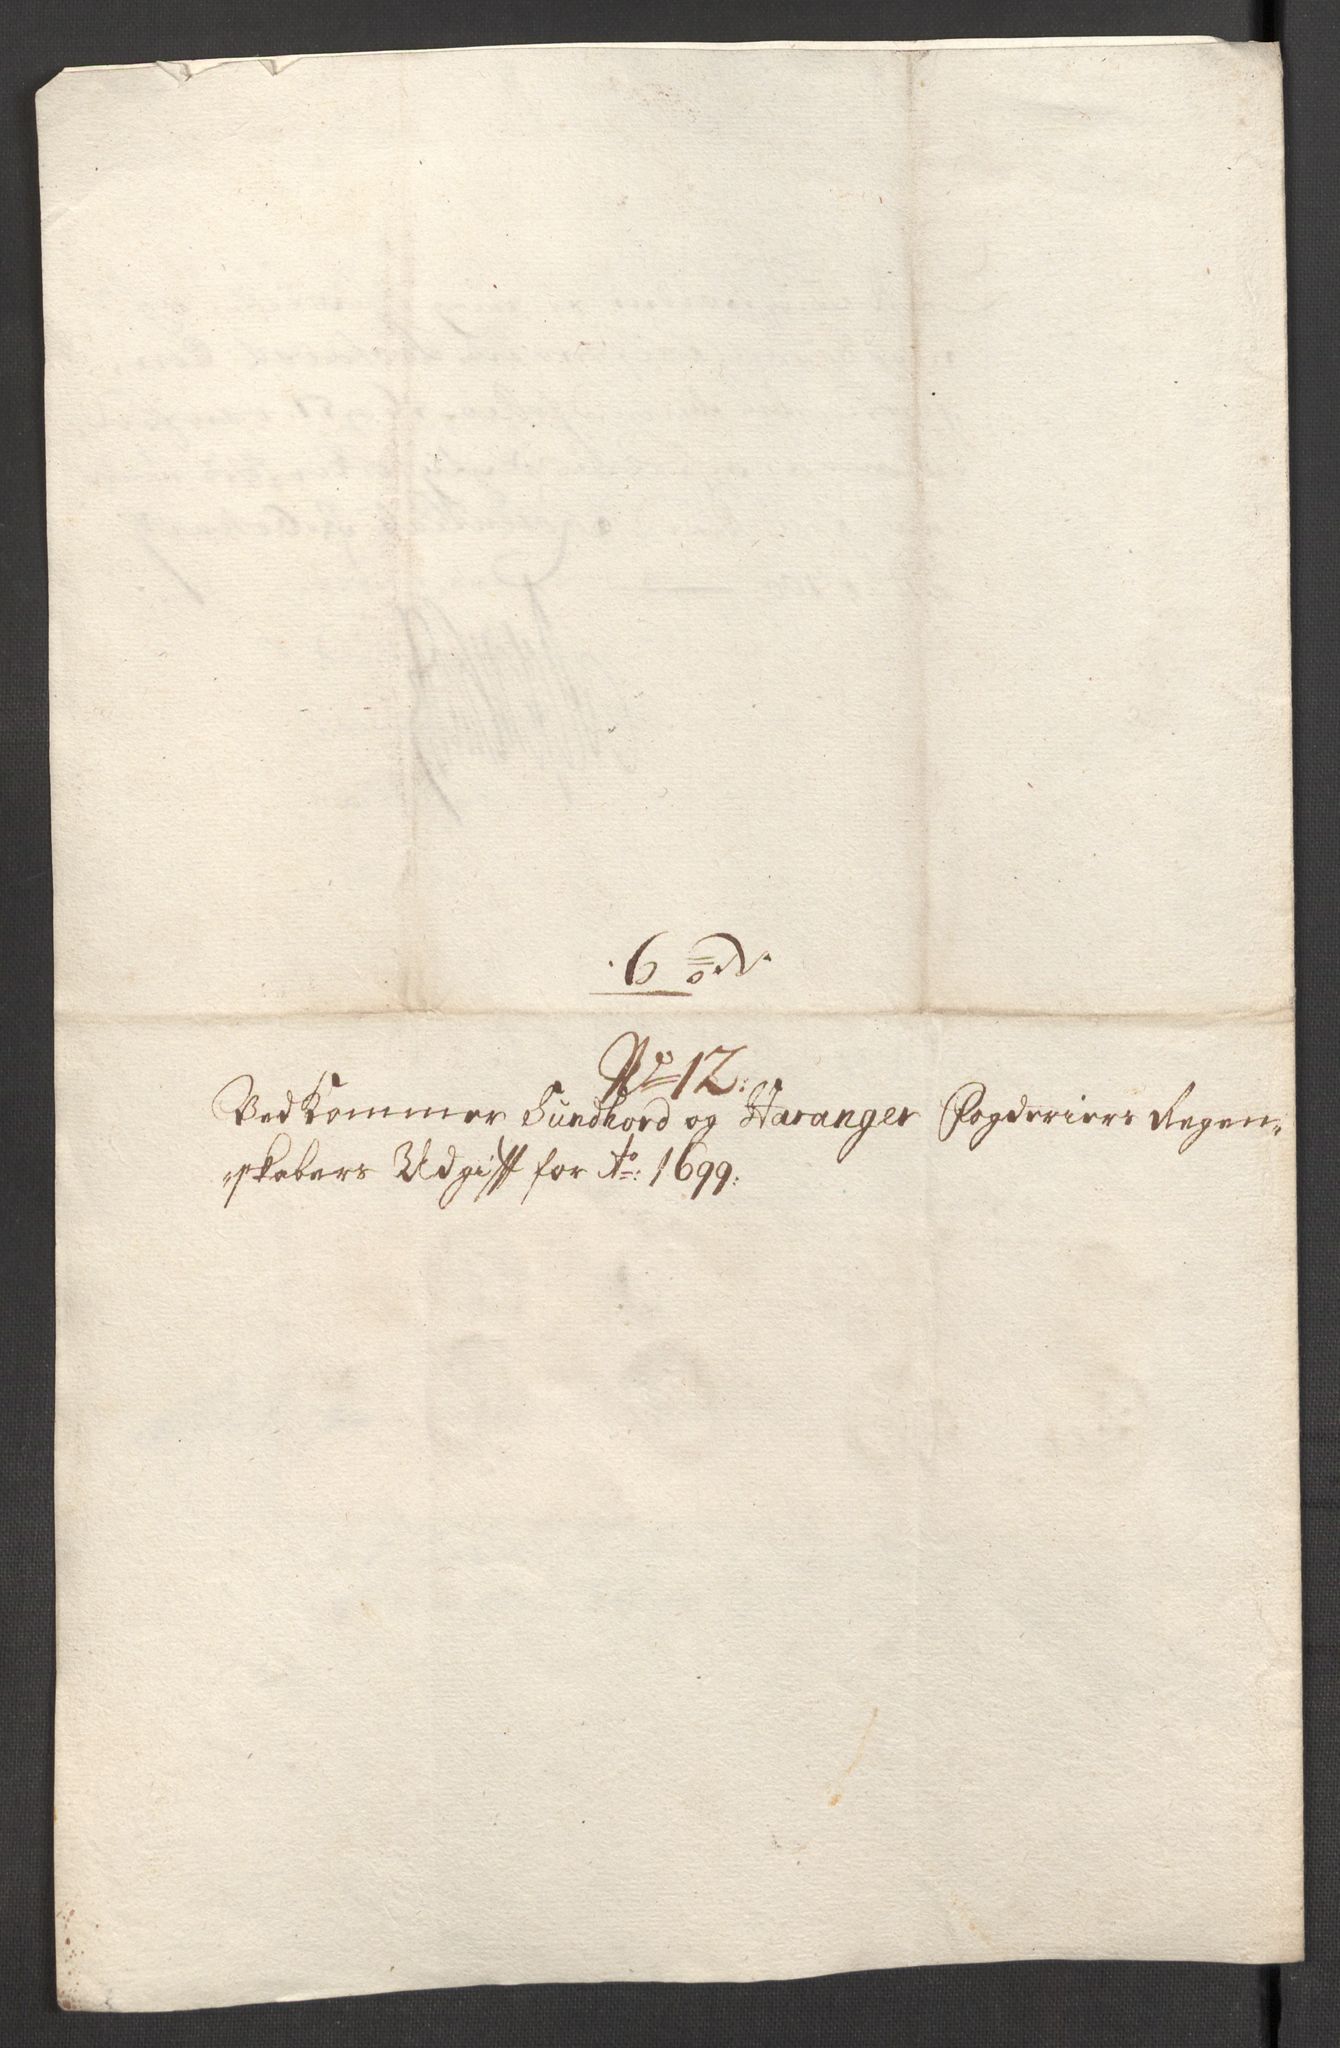 6
No 12:
Vedkommer Sundhord og Haranger Fogderiers Regen-
skabers Udgifft for Ao: 1699: